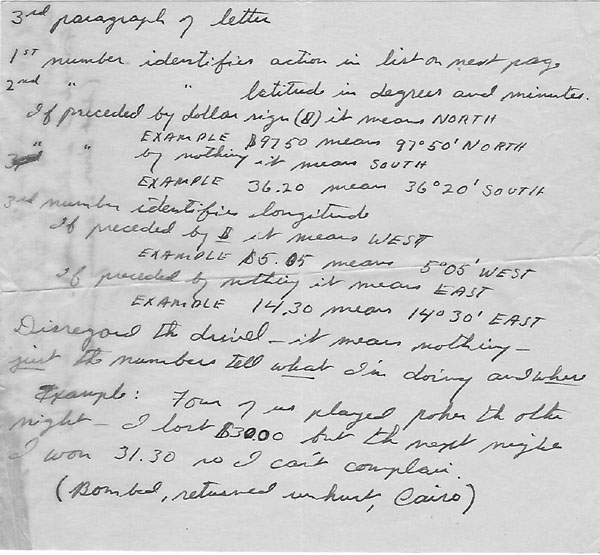 3rd paragraph of letter
1ST number identifies action in list on next page
2nd " " latitude in degrees and minutes.
If preceded by dollar sign ($) it means NORTH
EXAMPLE $97.50 means 97°50' NORTH
" " by nothing it means SOUTH
EXAMPLE 36.20 means 36°20' SOUTH
3rd number identifies longitude
If preceded by $ it means WEST
EXAMPLE $5.05 means 5°05' WEST
If preceded by nothing it means EAST
EXAMPLE 14.30 means 14°30' EAST
Disregard the drivel - it means nothing -
just the numbers tell what I'm doing and where
Example: Four of us played poker th other
night - I lost $30.00 but th next night
I won 31.30 so I can't complain.
(Bombed, returned unhurt, Cairo)